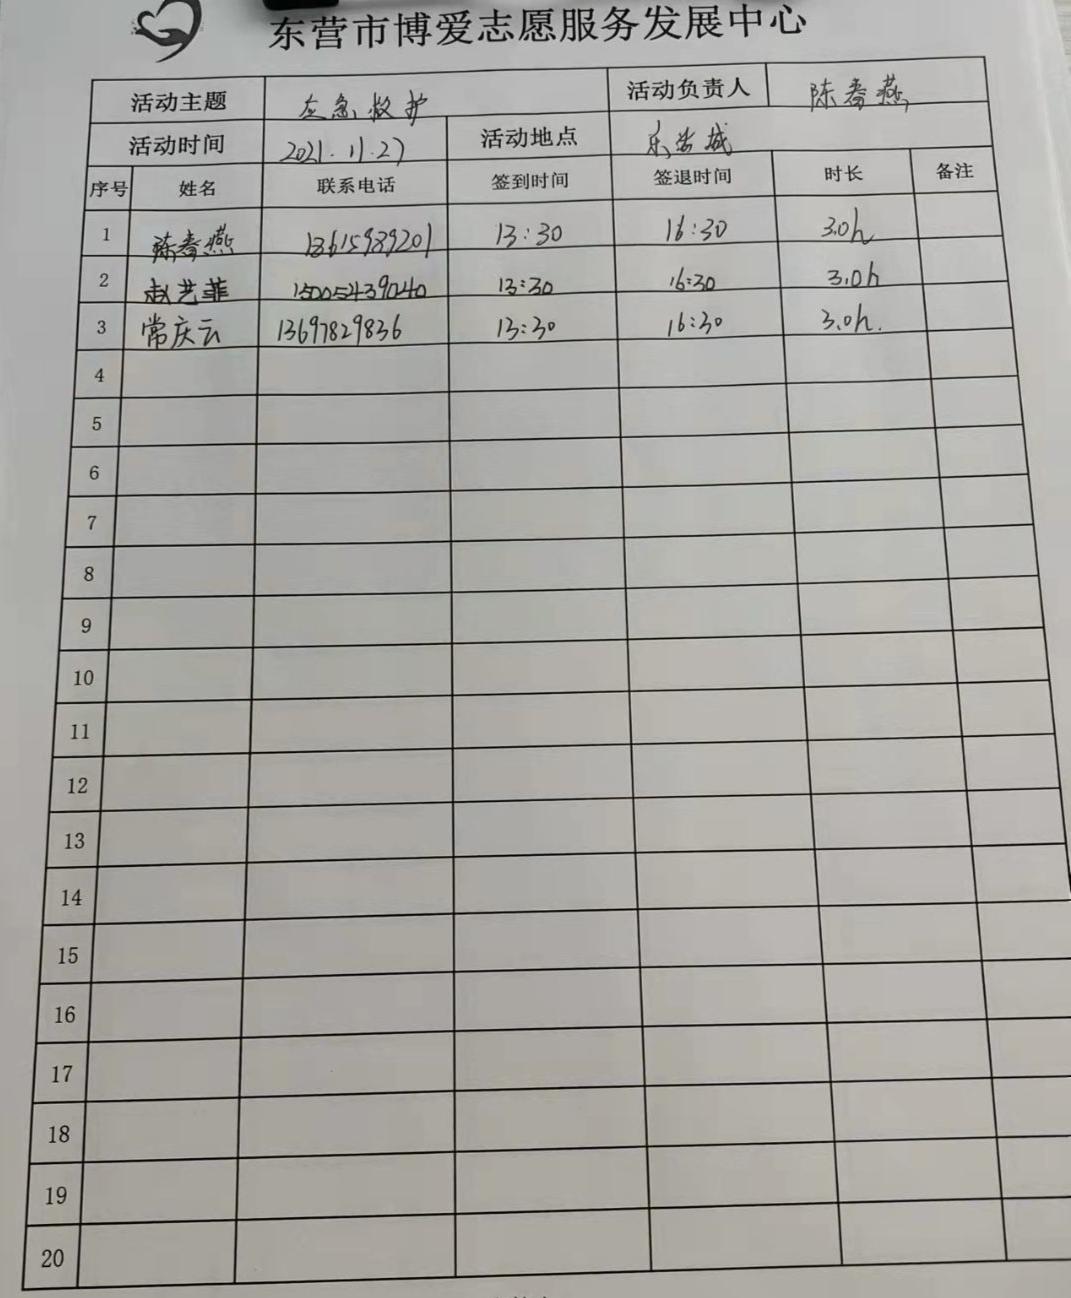 东营市博爱志愿服务发展中心
活动主题 应急救护 活动负责人 陈春燕
活动时间 2021.11.27 活动地点 东安城
序号 姓名 联系电话 签到时间 签退时间 时长 备注
1 陈春燕 13615989201 13:30 16:30 3.0h
2 赵艺菲 15005439040 13:30 16:30 3.0h
3 常庆云 13697829836 13:30 16:30 3.0h.
4
5
6
7
8
9
10
11
12
13
14
15
16
17
18
19
20